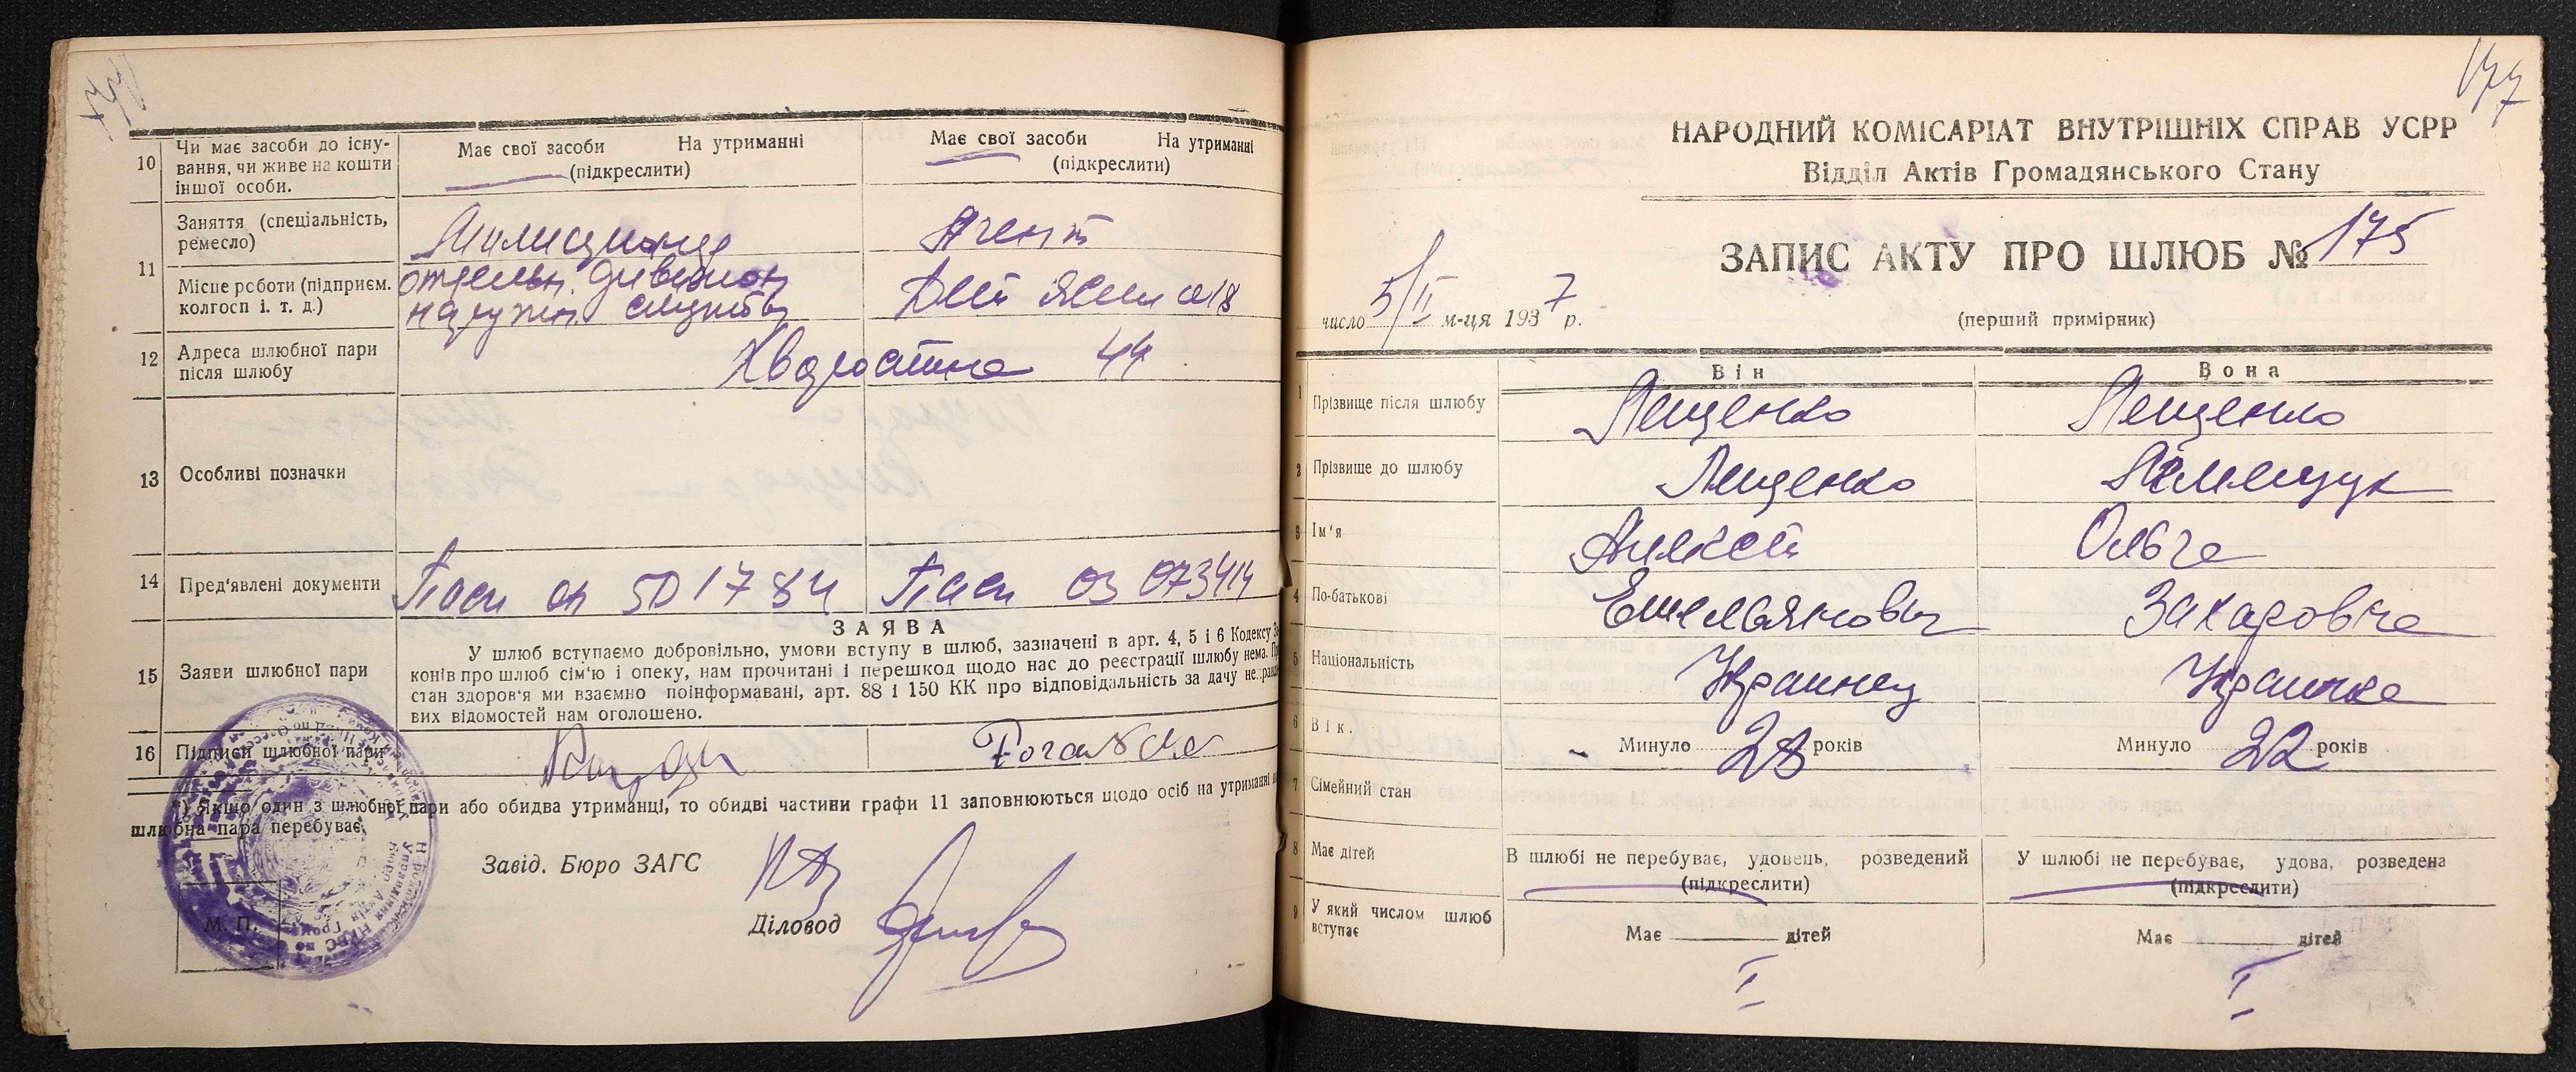 10 Чи має засоби до існу-
вання, чи живе на кошти
іншої особи.
Має свої засоби На утриманні
(підкреслити)
Має свої засоби На утриманні
(підкреслити)
11 Заняття (спеціальність,
ремесло)
Милиционер
Агент
Місце роботи (підприєм.
колгосп і. т. д.)
отдельн. дивизион
наружн. службы
Дет ясли №18
12 Адреса шлюбної пари
після шлюбу
Хворостина 44
13 Особливі позначки
14 Пред'явлені документи
Пасп 501784
Пасп ОЗ 073414
15 Заяви шлюбної пари
ЗАЯВА
У шлюб вступаємо добровільно, умови вступу в шлюб, зазначені в арт. 4, 5 і 6 Кодексу За
конів про шлюб сім'ю і опеку, нам прочитані і перешкод щодо нас до реєстрації шлюбу нема. Пр
стан здоров'я ми взаємно поінформавані, арт. 88 і 150 КК про відповідальність за дачу неправди
вих відомостей нам оголошено.
16 Підписи шлюбної пари
*) Якщо один з шлюбної пари або обидва утриманці, то обидві частини графи 11 заповнюються щодо осіб на утриманні
шлюбна пара перебуває.
Завід. Бюро ЗАГС
Діловод
М. П.
177
НАРОДНИЙ КОМІСАРІАТ ВНУТРІШНІХ СПРАВ УСРР
Відділ Актів Громадянського Стану
ЗАПИС АКТУ ПРО ШЛЮБ № 175
число 5/II м-ця 1937 р.
(перший примірник)
Він Вона
1 Прізвище після шлюбу Лещенко Лещенко
2 Прізвище до шлюбу Лещенко
3 Ім'я Алексей Ольга
4 По-батькові Емельянович Захаровна
5 Національність Украинец Украинка
6 Вік. Минуло 28 років Минуло 22 років
7 Сімейний стан
8 Має дітей
В шлюбі не перебуває, удовець, розведений
(підкреслити)
У шлюбі не перебуває, удова, розведена
(підкреслити)
9 У який числом шлюб
вступає
Має дітей Має дітей
I I